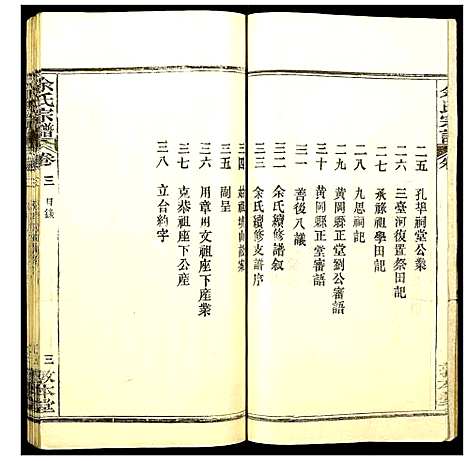 二五　孔埠祠堂公業
二六　三臺河復置祭田記
二七　承藤祖學田記
二八　九思祠記
二九　黄岡縣正堂劉公審語
三十　黄岡縣正堂審語
三一　善後八議
三二　余氏續修譜叙
三三　余氏續修支譜序
三四　祖墳
三五　副呈
三六　用章用文祖座下産業
三七　克恭祖座下公産
三八　立合約字
余氏宗譜　卷三　目錄　三　敦本堂
余氏宗譜　卷